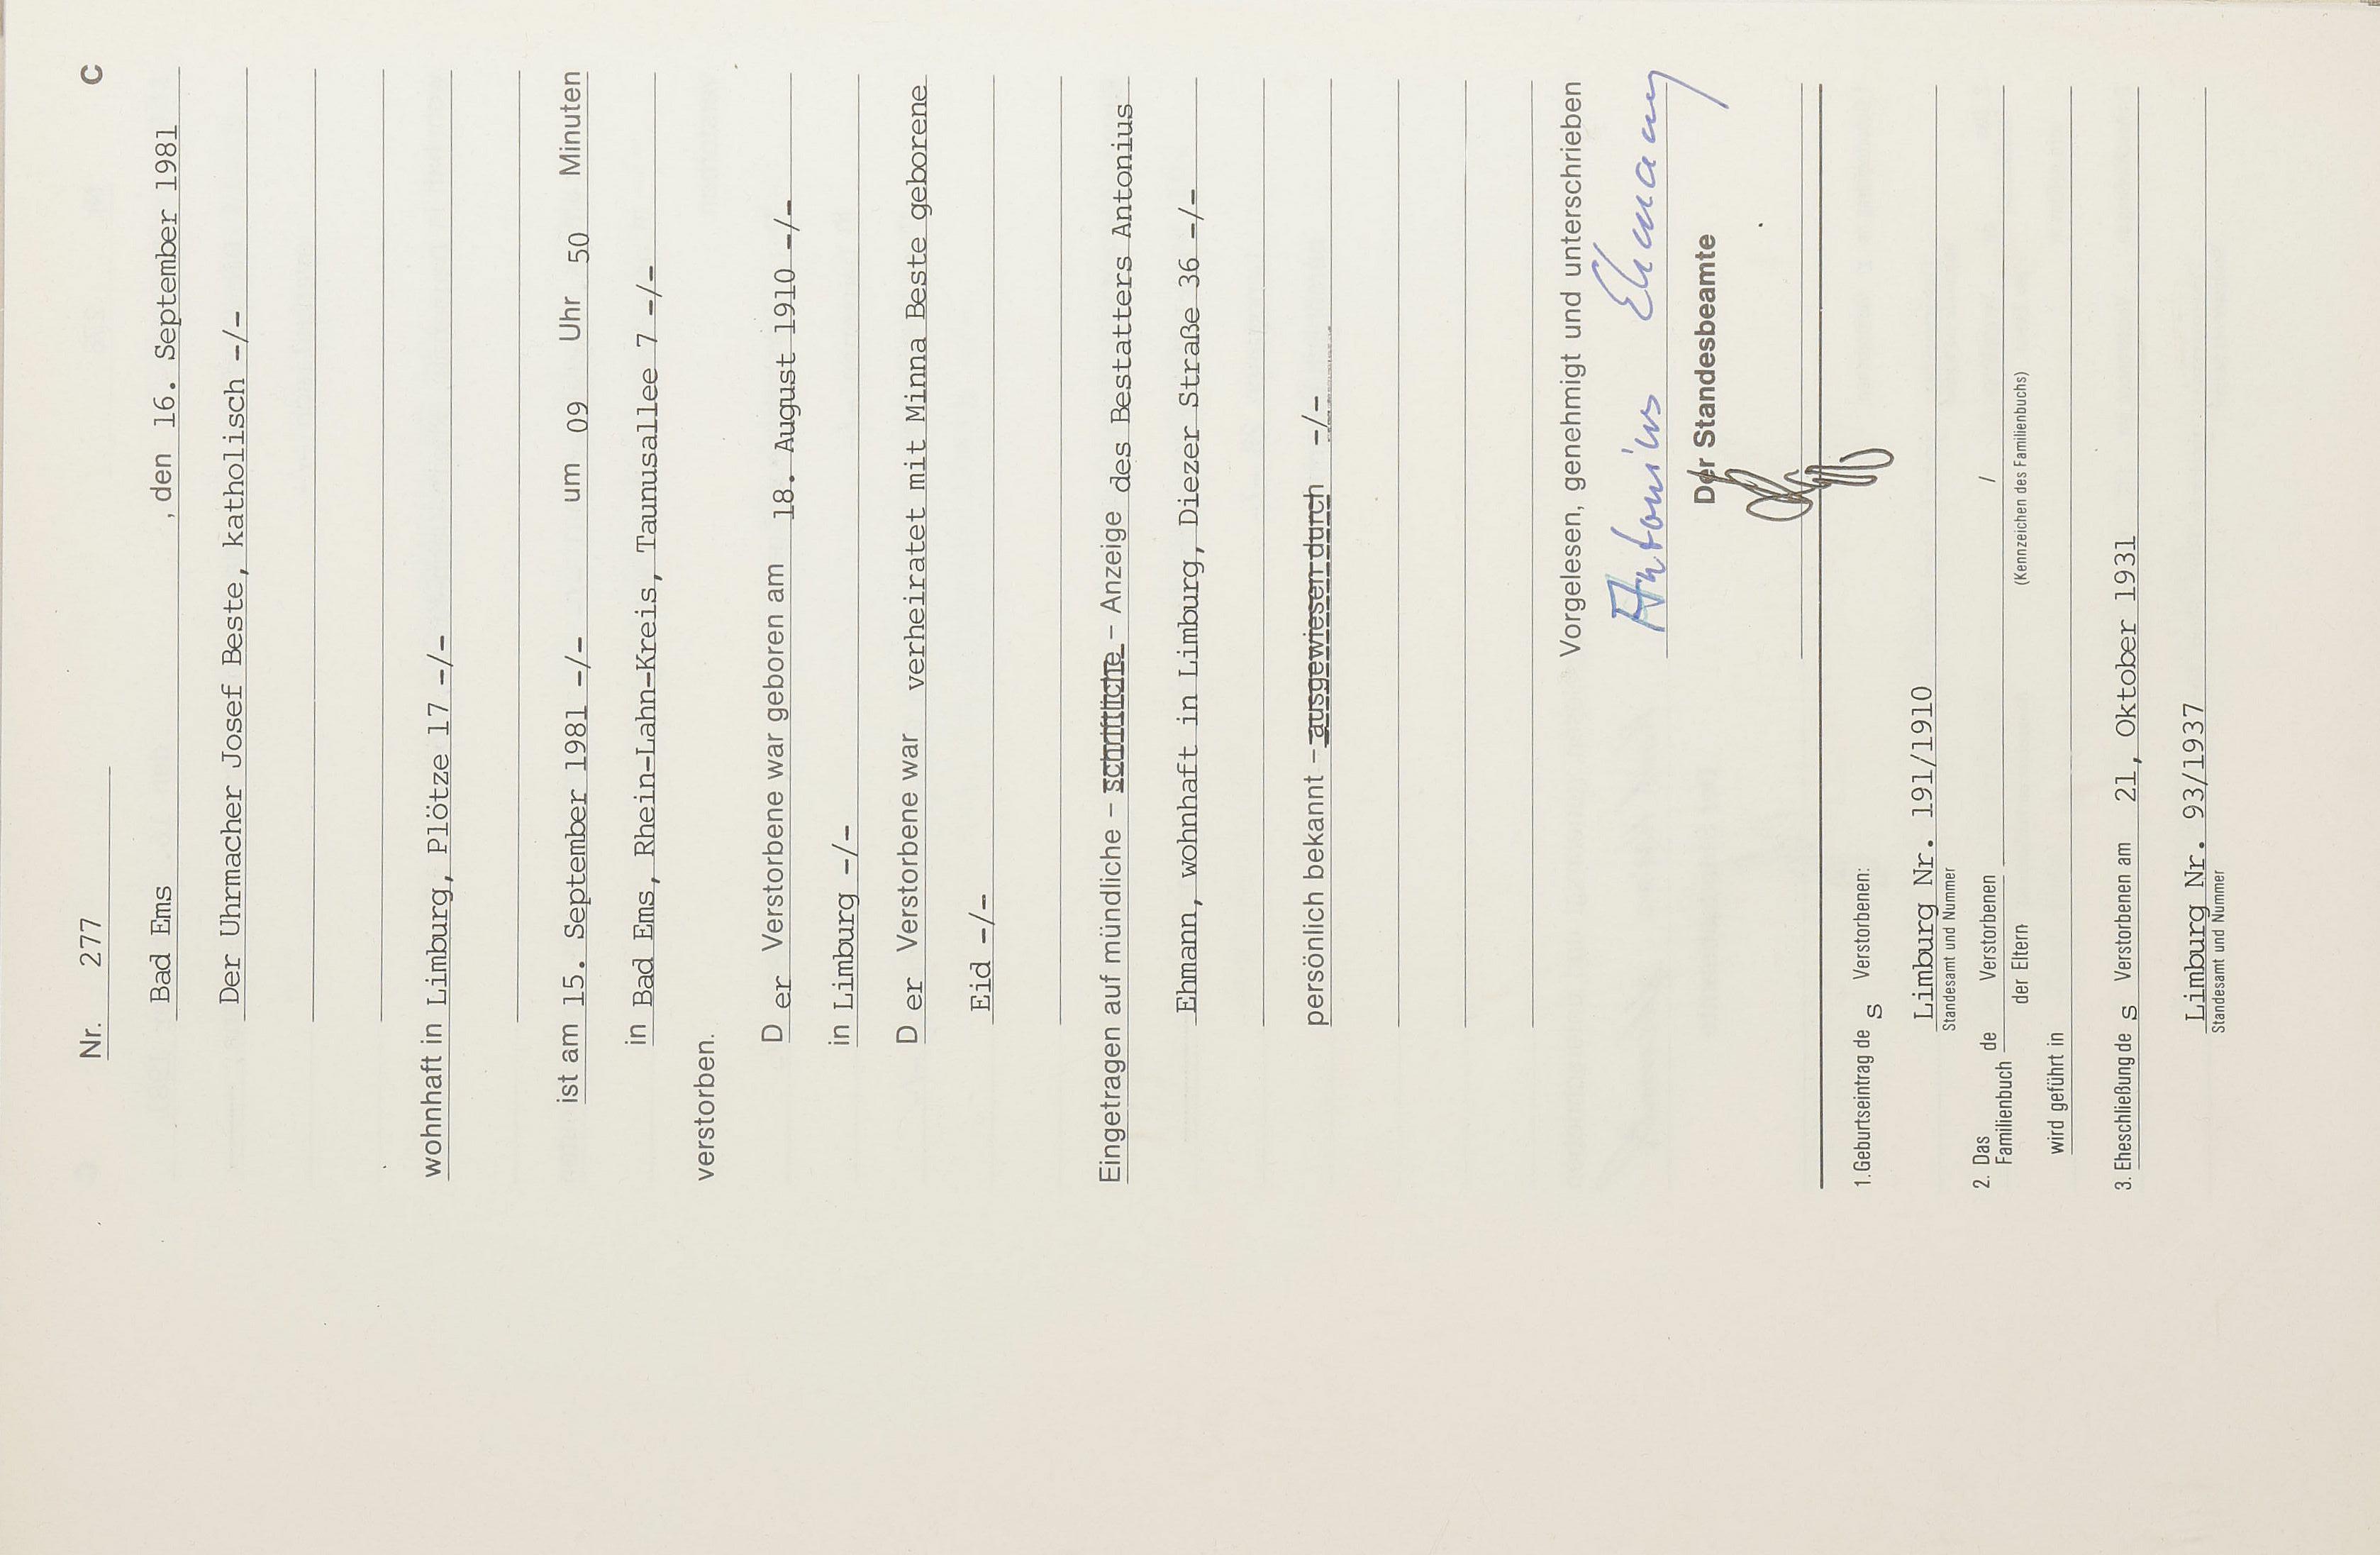 Nr. 277 C
Bad Ems , den 16. September 1981
Der Uhrmacher Josef Beste, katholisch -/-
wohnhaft in Limburg, Plötze 17 -/-
ist am 15. September 1981 -/- um 09 Uhr 50 Minuten
in Bad Ems, Rhein-Lahn-Kreis, Taunusallee 7 -/-
verstorben.
D er Verstorbene war geboren am 18. August 1910 -/-
in Limburg -/-
D er Verstorbene war verheiratet mit Minna Beste geborene
Eid -/-
Eingetragen auf mündliche - schriftliche - Anzeige des Bestatters Antonius
Ehmann, wohnhaft in Limburg, Diezer Straße 36 -/-
persönlich bekannt - ausgewiesen durch -/-
Vorgelesen, genehmigt und unterschrieben
Antonius Ehmann
Der Standesbeamte
1. Geburtseintrag de s Verstorbenen:
Limburg Nr. 191/1910
Standesamt und Nummer
2. Das Familienbuch de Verstorbenen /
der Eltern (Kennzeichen des Familienbuchs)
wird geführt in
3. Eheschließung de s Verstorbenen am 21, Oktober 1931
Limburg Nr. 93/1937
Standesamt und Nummer